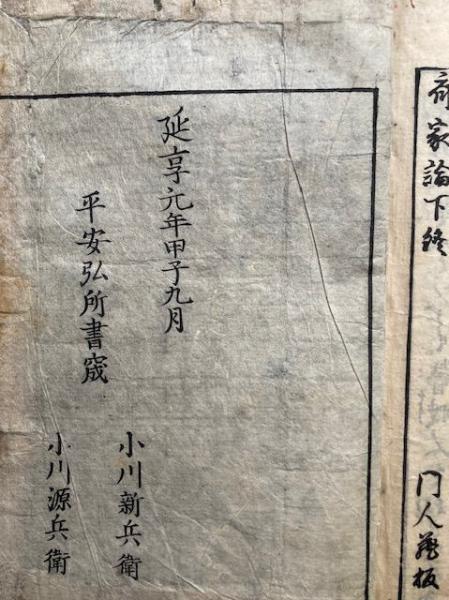 斉家論下終
門人蔵板
延享元年甲子九月
平安弘所書宬
小川新兵衛
小川源兵衛